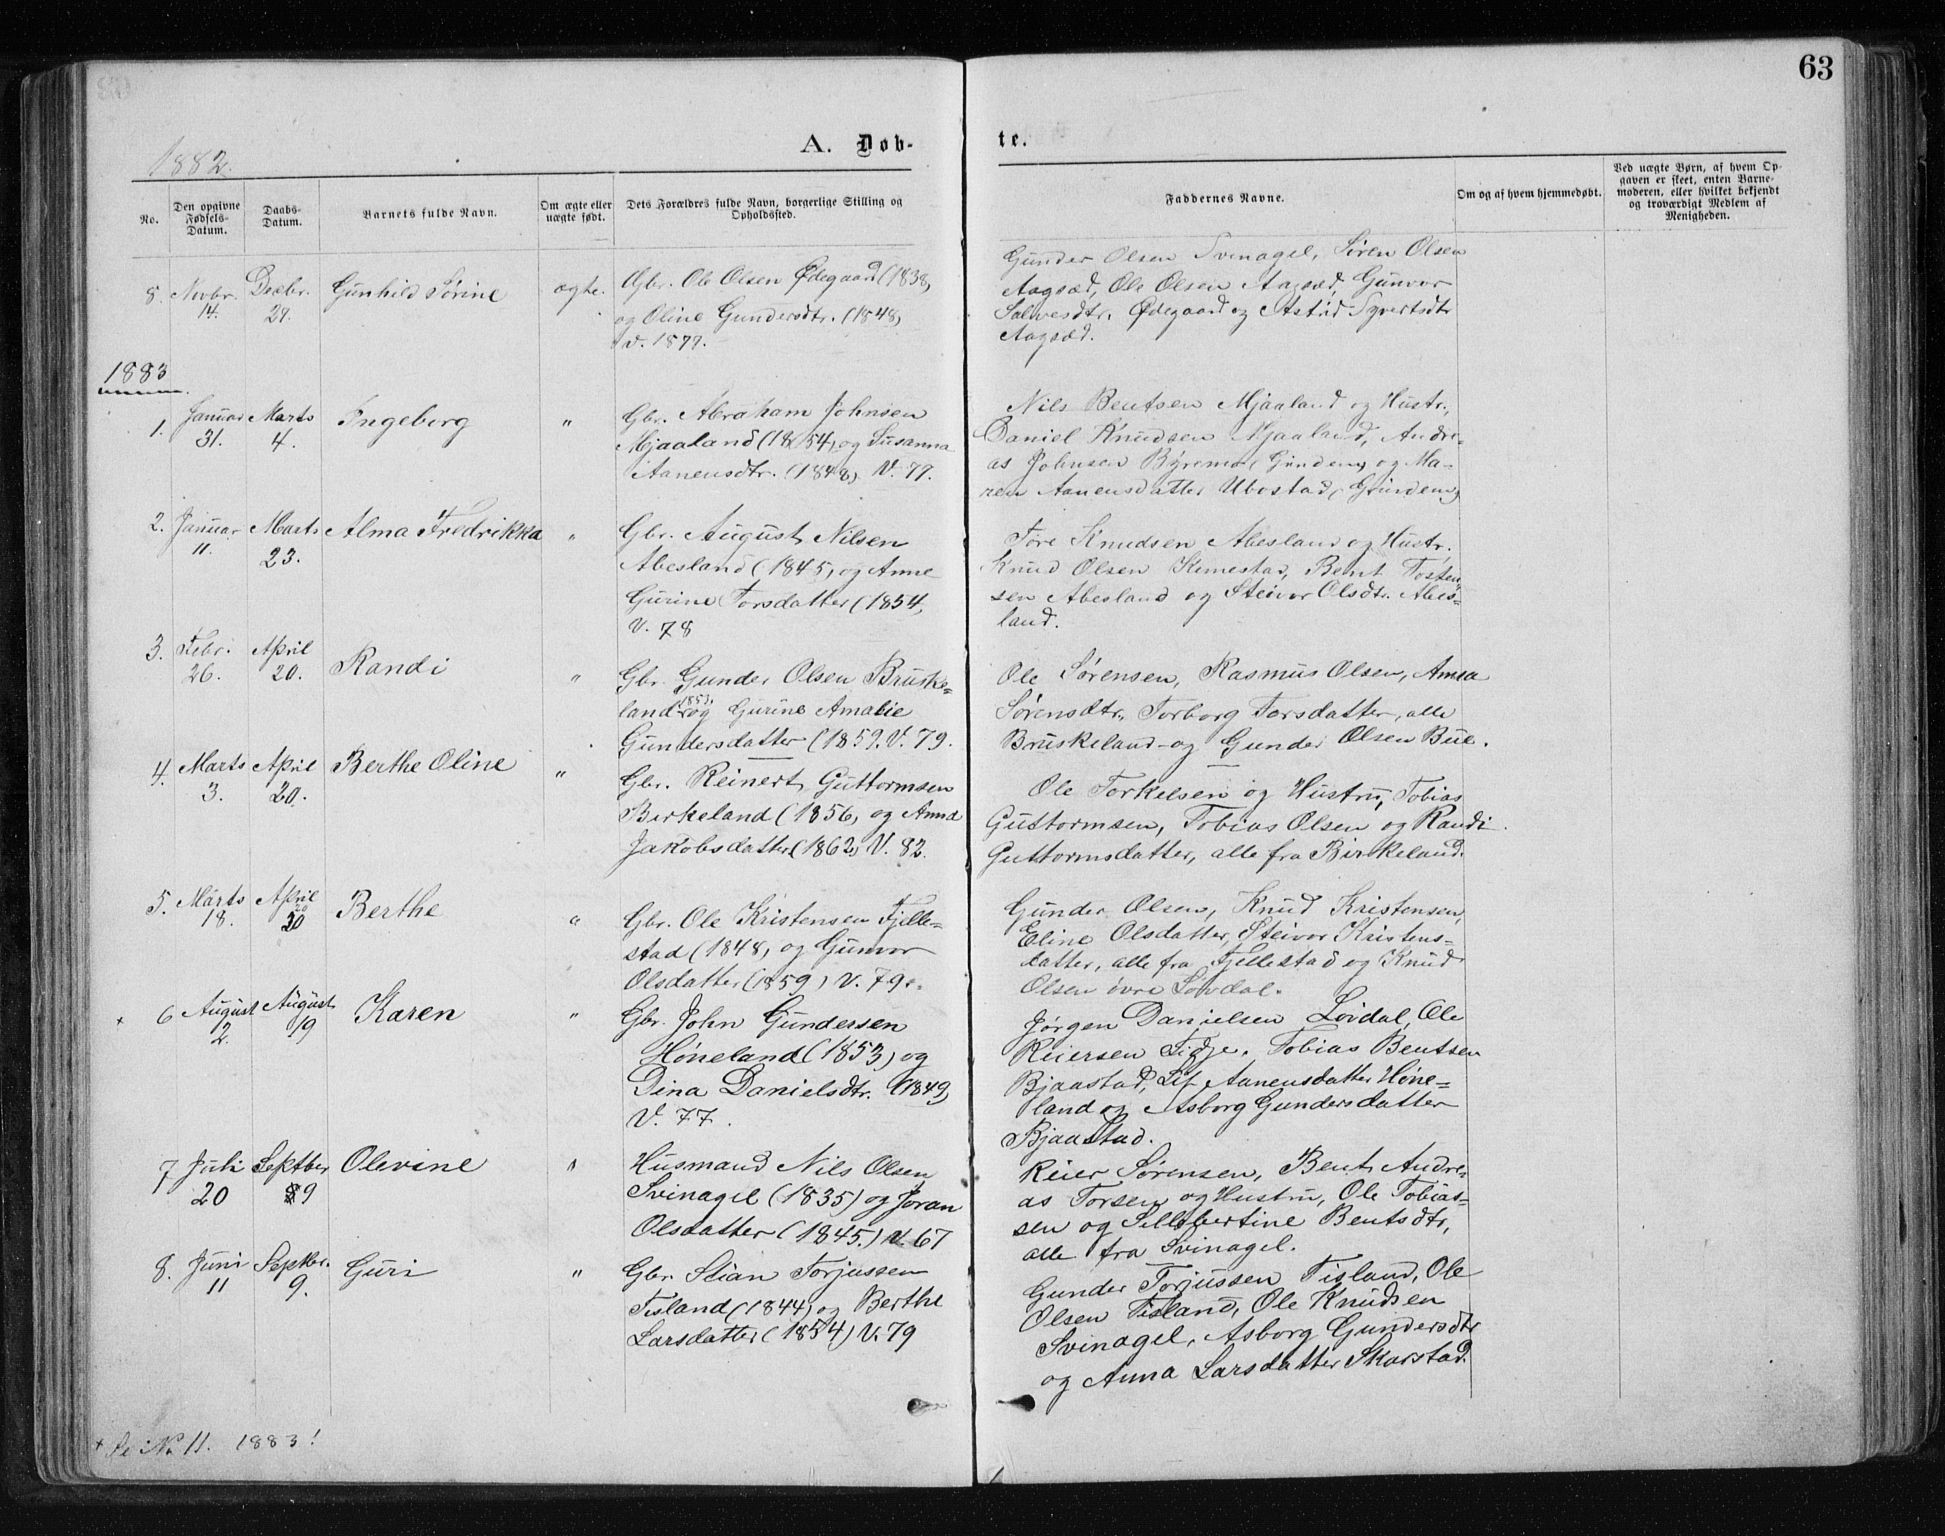 63
1882.
A. Døb-
te.
No.
Den opgivne Fødsels-Datum.
Daabs-Datum.
Barnets fulde Navn.
Om ægte eller uægte født.
Dets Forældres fulde Navn, borgerlige Stilling og Opholdssted.
Faddernes Navne.
Om og af hvem hjemmedøbt.
Ved uægte Børn, af hvem Opgaven er skeet, enten Barnemoderen, eller hvilket bekjendt og troværdigt Medlem af Menigheden.
8. Novbr. 14. Decbr. Gunhild Sørine ægte. Gbr. Ole Olsen Ødegaard (1838)
og Oline Gundersdtr. (1848)
V. 1877.
Gunder Olsen Svinagel, Søren Olsen
Aagsæd, Ole Olsen Aagsæd, Gunvor
Salvesdtr. Ødegaard og Astrid Syvertsdtr
Aagsæd.
1883
1. Januar 31. Marts 4. Ingeborg " Gbr. Abraham Johnsen
Mjaaland (1854) og Susanna
Aanensdtr. (1848) V. 77.
Nils Bentsen Mjaaland og Hustr.,
Daniel Knudsen Mjaaland, Andre-
as Johnsen Byremo, Grinden, og Ma-
ren Aanensdatter Ubostad, Grinden,
2. Januar 11. Marts 23. Alma Fredrikka " Gbr. August Nilsen
Abesland (1845) og Anne
Gurine Torsdatter (1854,
V. 78
Tore Knudsen Abesland og Hustr.
Knud Olsen Kimestad, Bent Tosten-
sen Abesland og Steivor Olsdtr. Abes-
land.
3. Febr. 26. April 20. Randi " Gbr. Gunder Olsen Bruske-
land (1853) og Gurine Amalie
Gundersdatter (1859. V. 79.
Ole Sørensen, Rasmus Olsen, Anna
Sørensdtr., Torborg Torsdatter, alle
Bruskeland og Gunder Olsen Bue.
4. Marts 3. April 20. Berthe Oline " Gbr. Reinert Guttormsen
Birkeland (1856) og Anna
Jakobsdatter (1862) V. 82.
Ole Torkelsen og Hustru, Tobias
Guttormsen, Tobias Olsen og Randi
Guttormsdatter, alle fra Birkeland.
5. Marts 18. April 20 Berthe " Gbr. Ole Kristensen Fjelle-
stad (1848) og Gunvor
Olsdatter (1859) V. 79.
Gunder Olsen, Knud Kristensen,
Eline Olsdatter, Steivor Kristens-
datter, alle fra Fjellestad og Knud
Olsen øvre Løvdal.
+ 6 August 2. August 19 Karen " Gbr. John Gundersen
Høneland (1853) og
Dina Danielsdtr. (1849)
V. 77.
Jørgen Danielsen Løvdal, Ole
Reiersen Tidje, Tobias Bentsen
Bjaastad, Liv Aanensdatter Høne-
land og Asborg Gundersdatter
Bjaastad.
7 Juli 20 Septber 9 Olevine " Husmand Nils Olsen
Svinagel (1835) og Joran
Olsdatter (1845.) V. 67
Reier Sørensen, Bent Andre-
as Torsen og Hustru, Ole Tobias-
sen og Sillebertine Bentsdtr,
alle fra Svinagel.
8. Juni 11 Septbr. 9. Guri " Gbr. Stian Torjussen
Tisland (1844) og Berthe
Larsdatter (1854) V. 79
Gunder Torjussen Tisland, Ole
Olsen Tisland, Ole Knudsen
Svinagel, Asborg Gundersdtr
og Anna Larsdatter Skarstad.
+ Se No. 11. 1883!